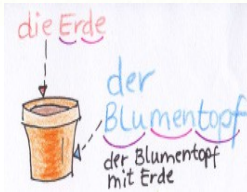 die Erde
der
Blumentopf
der Blumentopf
mit Erde